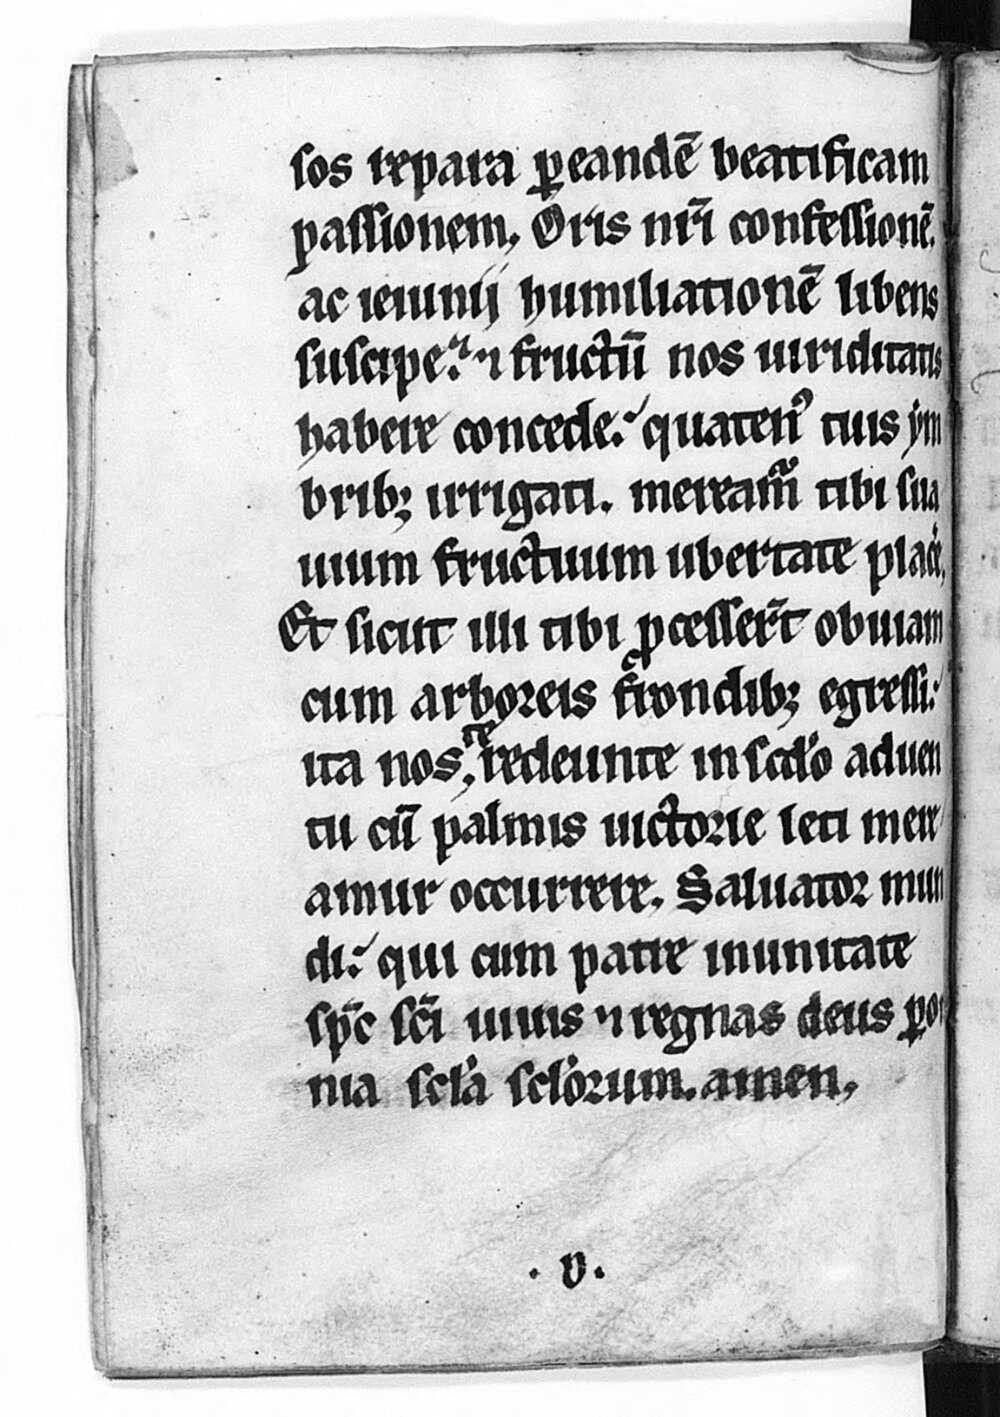 sos repara ꝑeandē beatificam
passionem, Oris nr̄i confessionē.
ac ieiunij humiliationē libens
suscipe. ⁊ fructū nos uiriditatis
habere concede. quatenꝰ tuis ẏm
bribꝫ irrigati. mereamᷣ tibi sua
uium fructuum ubertate placẽ,
Et sicut illi tibi ꝓcessert̄ obuiam
cum arboreis frondibꝫ egressi.
ita nos, te redeunte in scdo aduen
tu cū palmis uictorie leti mere
amur occurrere, Saluator mun
di. qui cum patre inunitate
sp̄c sc̄i uiuis ⁊ regnas deus ꝑom
nia scl̓a scl̓orum. amen,
. v .